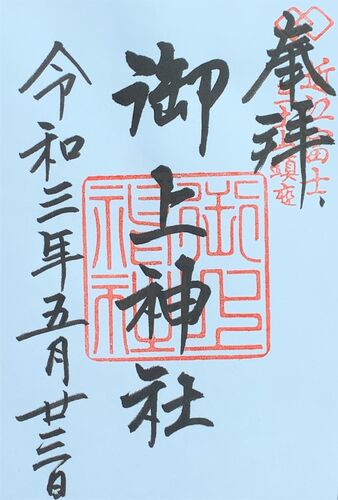 奉拝
近江富士
鎮座
御上神社
御上神社
令和三年五月廿三日